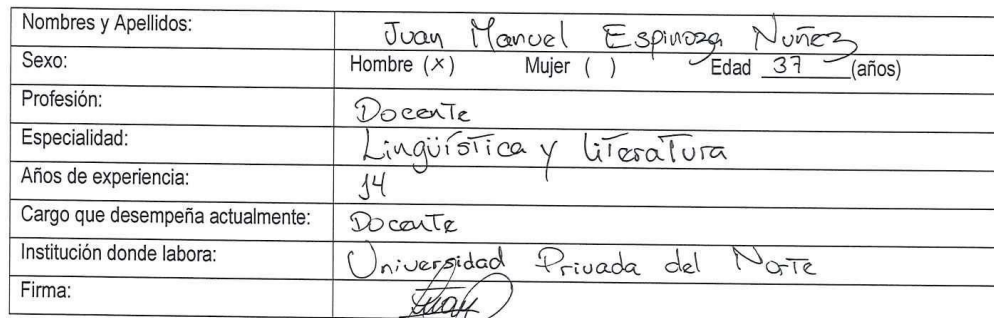 Nombres y Apellidos: Juan Manuel Espinoza Nuñez
Sexo: Hombre (x) Mujer ( ) Edad 37 (años)
Profesión: Docente
Especialidad: Lingüística y literatura
Años de experiencia: 14
Cargo que desempeña actualmente: Docente
Institución donde labora: Universidad Privada del Norte
Firma: